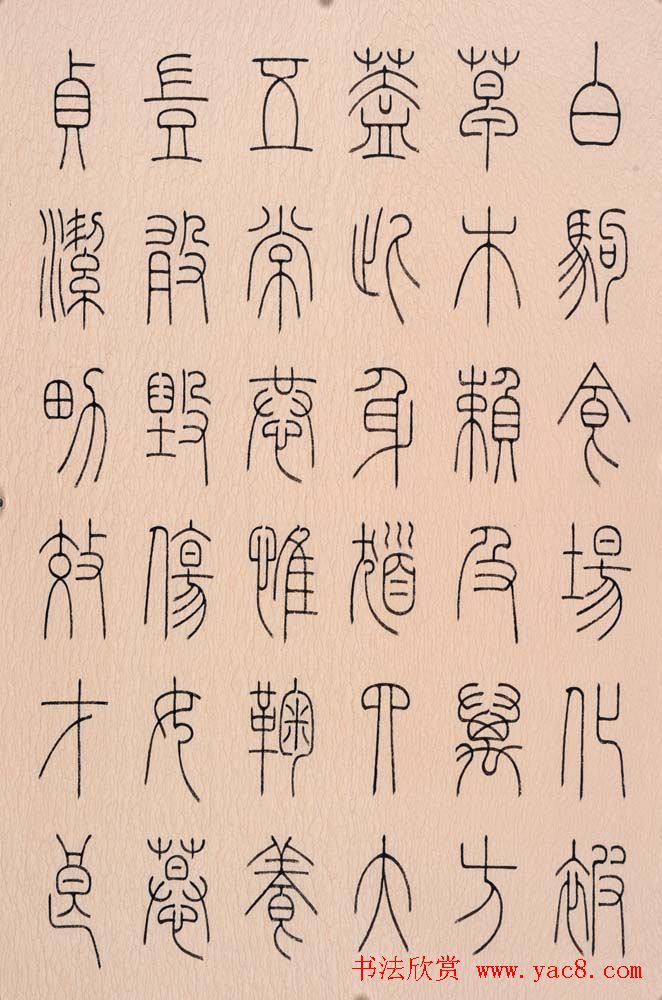 白駒食場化被
草木賴及萬方
蓋此身髮四大
五常恭惟鞠養
豈敢毀傷女慕
貞潔男效才良
书法欣赏 www.yac8.com